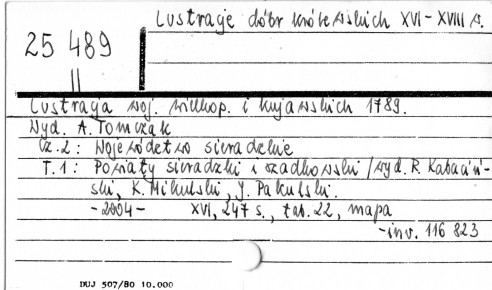 Lustracje dóbr królewskich XVI-XVIII w.
25 489
II
Lustracja woj. wielkop. i kujawskich 1789.
Wyd. A. Tomczak
Cz. 2: Województwo sieradzkie
T. 1: Powiaty sieradzki i szadkowski / wyd. R. Kabaciń-
ski, K. Mikulski, J. Pakulski.
- 2004 - XVI, 247 s., tab. 22, mapa
- inv. 116 823
DUJ 507/80 10.000